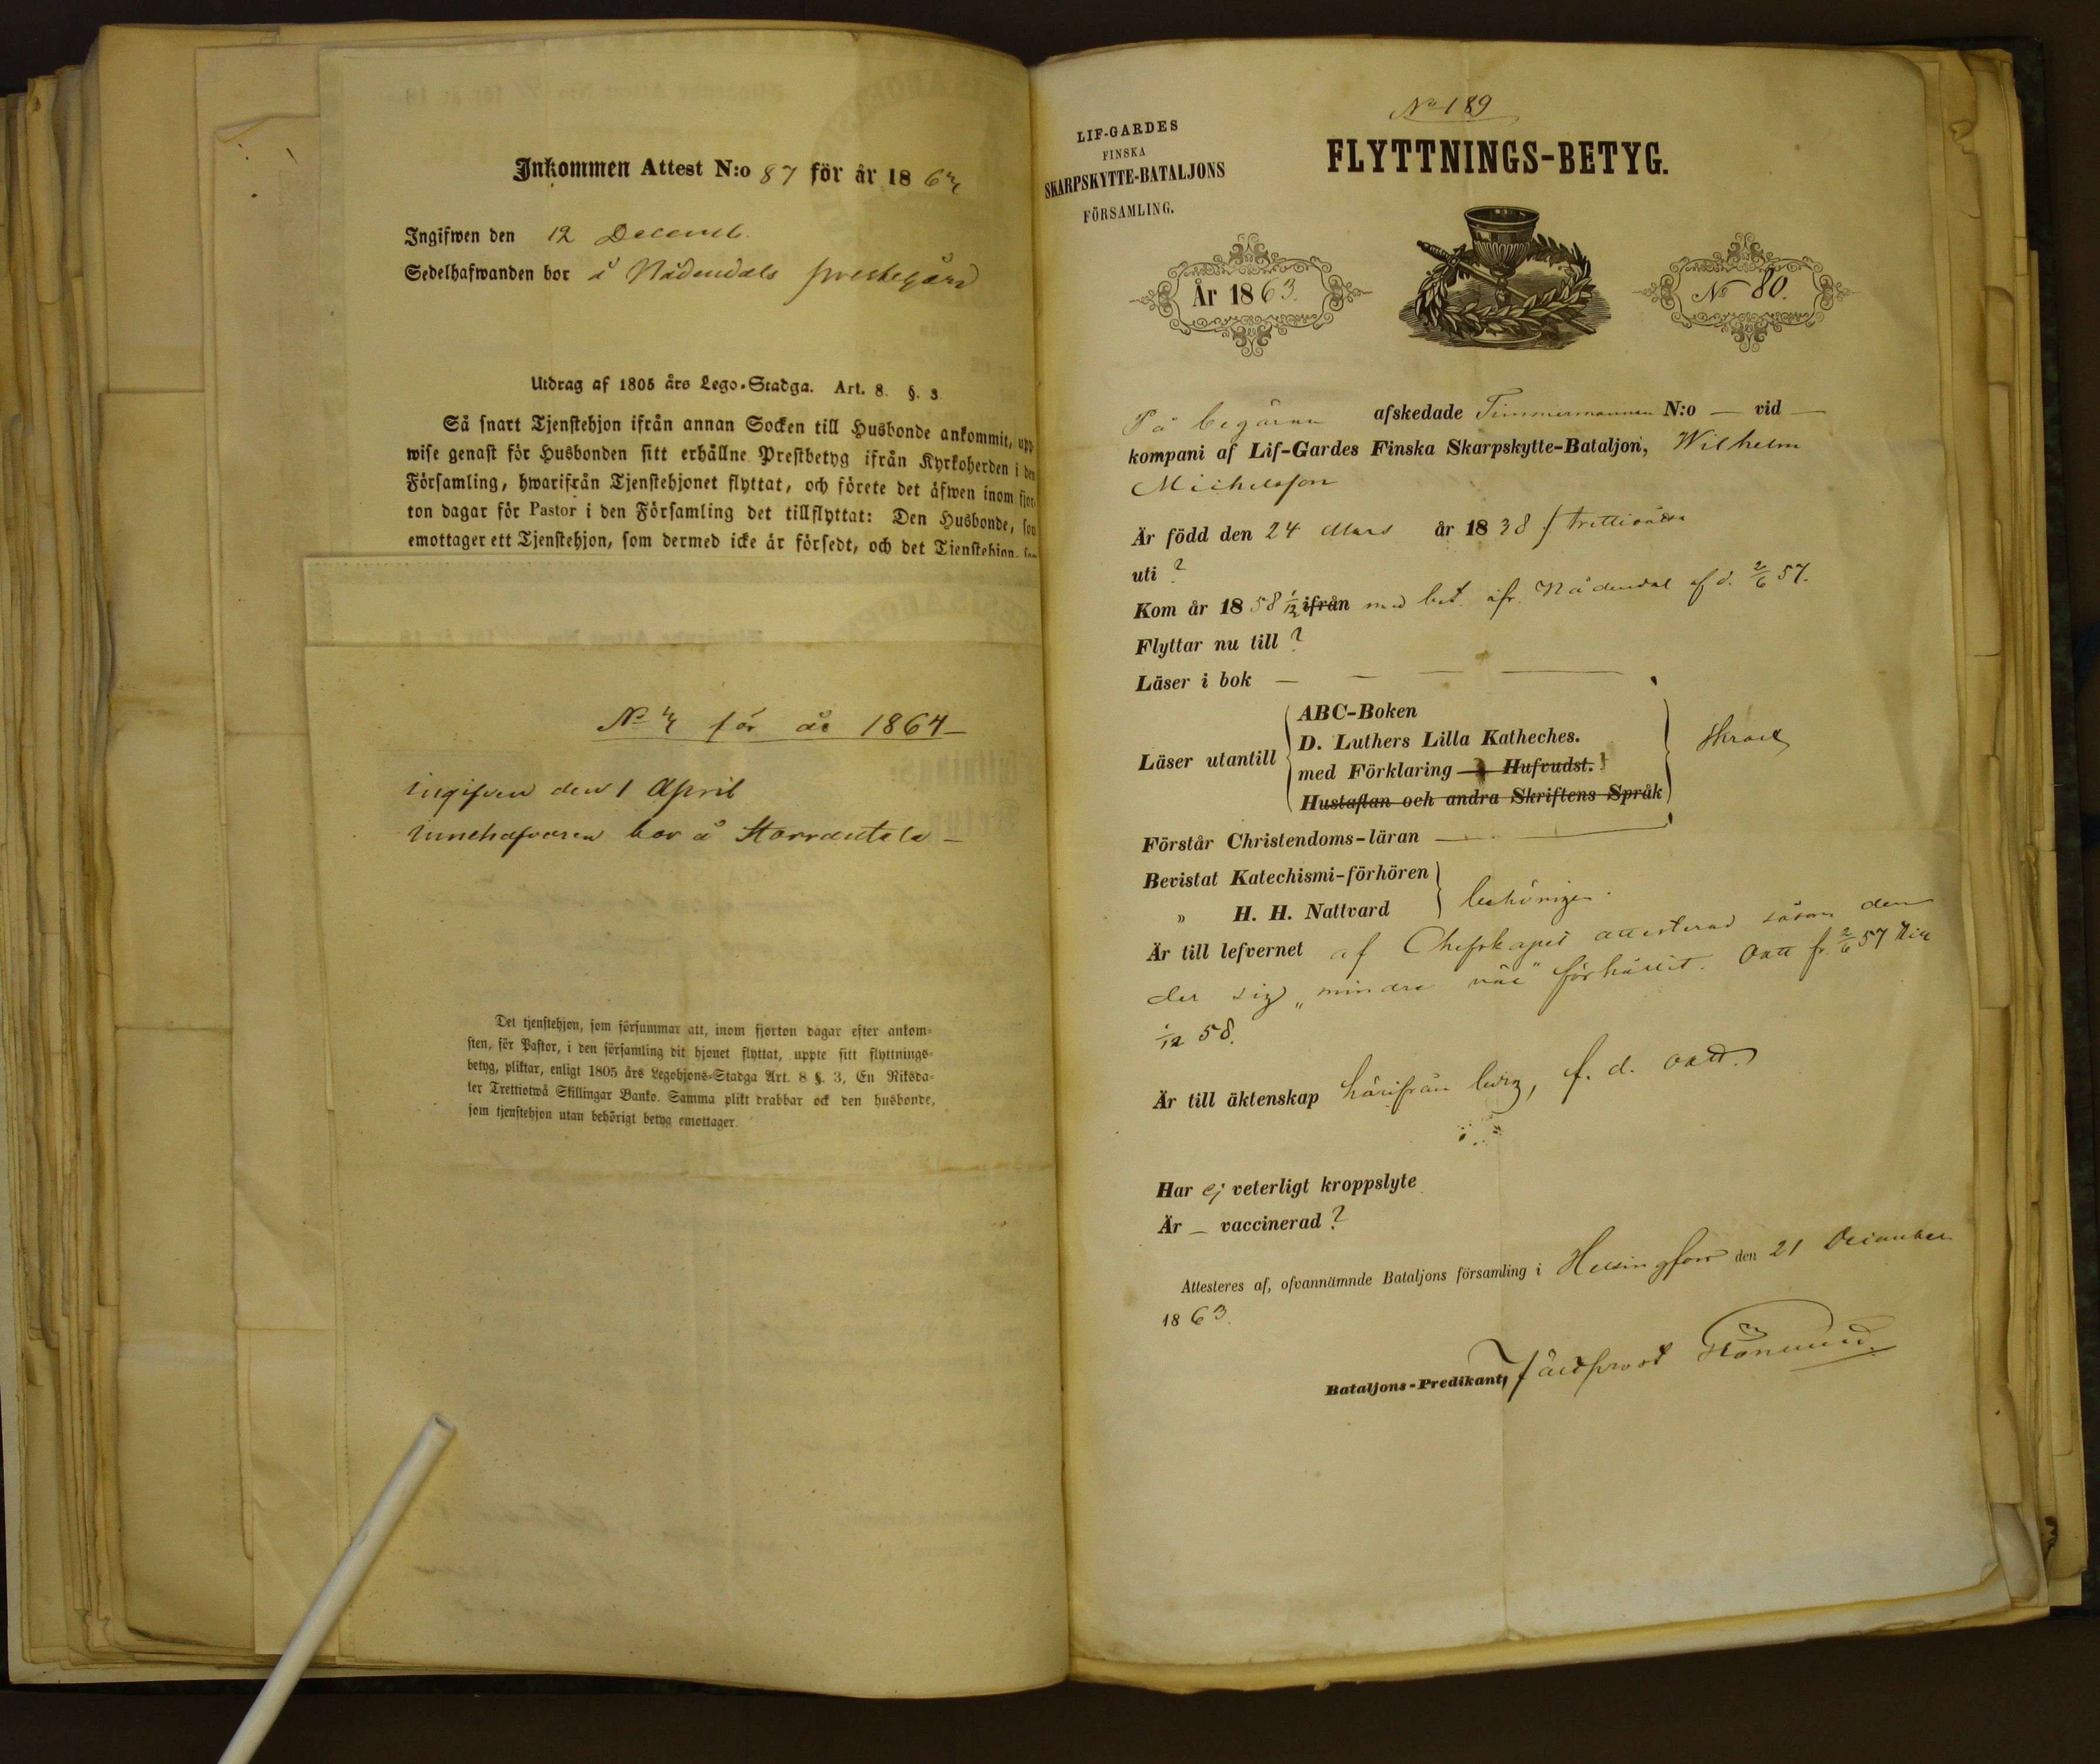 Inkommen Attest N:o 87 för år 186
Ingifwen den 12 Decemb.
Sedelhafwanden bor å Nådendals prestegård
Utdrag af 1805 års Lego-Stadga. Art. 8. §. 3
Så snart Tjenstehjon ifrån annan Socken till Husbonde ankommit, upp-
wise genast för Husbonden sitt erhållne Prestbetyg ifrån Kyrkoherden i den
Församling, hwarifrån Tjenstehjonet flyttat, och förete det äfwen inom fjor-
ton dagar för Pastor i den Församling det tillflyttat: Den Husbonde, som
emottager ett Tjenstehjon, som dermed icke är försedt, och det Tjenstehjon, som
No 4 för år 1864
ingifven den 1 April
innehafvaren bor å
Det tjenstehjon, som försummar att, inom fjorton dagar efter ankom-
sten, för Pastor, i den församling dit hjonet flyttat, uppte sitt flyttnings-
betyg, pliktar, enligt 1805 års Legohjons-Stadga Art. 8 §. 3, En Riksda-
ler Trettiotwå Skillingar Banko. Samma plikt drabbar ock den husbonde,
som tjenstehjon utan behörigt betyg emottager.
No 189
LIF-GARDES
FINSKA
SKARPSKYTTE-BATALJONS
FÖRSAMLING.
FLYTTNINGS-BETYG.
År 1863.
No 80.
På begäran afskedade Timmermannen N:o — vid —
kompani af Lif-Gardes Finska Skarpskytte-Bataljon, Wilhelm
Michelsson
Är född den 24 Mars år 1838 / trettioåtta
uti ?
Kom år 1858 1/12 ifrån med bet. ifr. Nådendal af d. 2/6 57.
Flyttar nu till ?
Läser i bok — — — —
Läser utantill
ABC-Boken
D. Luthers Lilla Katheches.
med Förklaring Hufvudst.
Hustaflan och andra Skriftens Språk
Förstår Christendoms-läran —
Bevistat Katechismi-förhören
" H. H. Nattvard
behörigen.
Är till lefvernet af Chefskapet attesterad såsom den
der sig "mindre väl" förhållit. Oatt fr. 2/6 57 till
1/12 58.
Är till äktenskap härifrån ledig, f. d. oatt.
Har ej veterligt kroppslyte
Är — vaccinerad ?
Attesteres af, ofvannämnde Bataljons församling i Helsingfors den 21 December
1863.
Bataljons-Predikant,